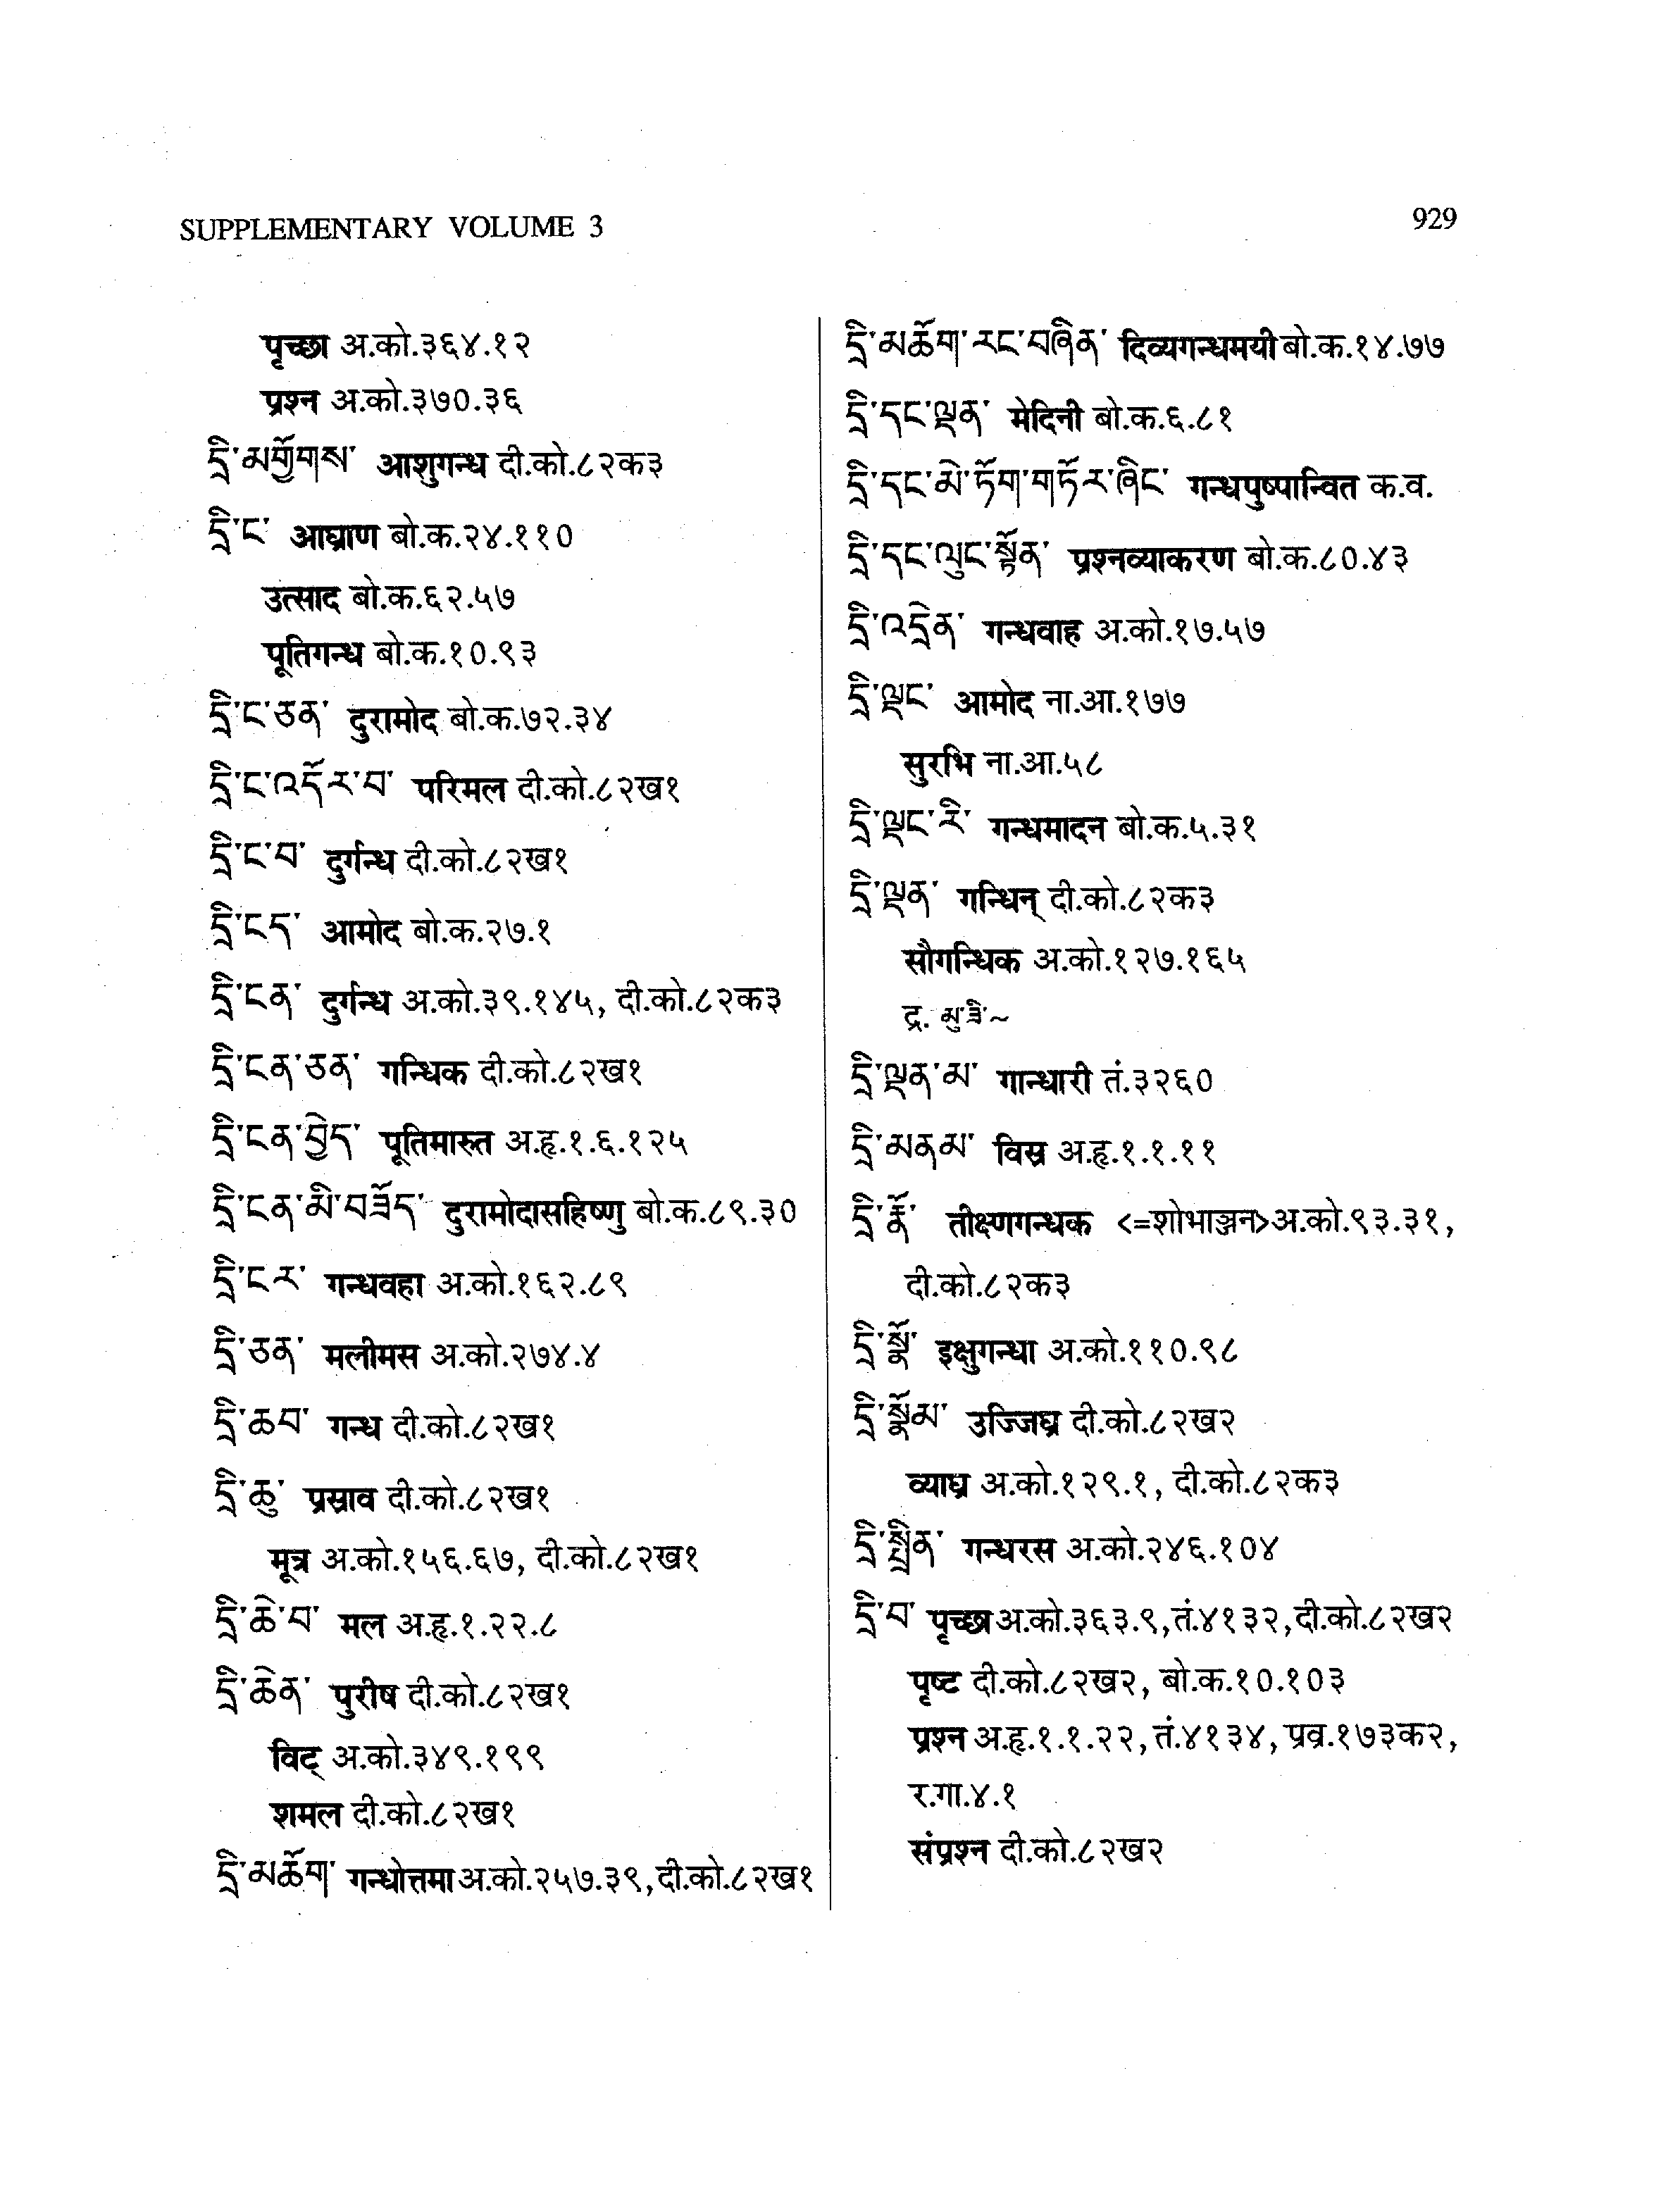 SUPPLEMENTARY VOLUME 3
929
पृच्छा अ.को.३६४.१२
प्रश्न अ.को.३७०.३६
དྲི་མགྱོགས་ आशुगन्ध दी.को.८२क३
དྲི་ང་ आघ्राण बो.क.२४.११०
उत्साद बो.क.६२.५७
पूतिगन्ध बो.क.१०.९३
དྲི་ང་ཅན་ दुरामोद बो.क.७२.३४
དྲི་ང་འདོར་བ་ परिमल दी.को.८२ख१
དྲི་ང་བ་ दुर्गन्ध दी.को.८२ख१
དྲི་ངད་ आमोद बो.क.२७.१
དྲི་ངན་ दुर्गन्ध अ.को.३९.१४५, दी.को.८२क३
དྲི་ངན་ཅན་ गन्धिक दी.को.८२ख१
དྲི་ངན་བྱེད་ पूतिमारुत अ.हृ.१.६.१२५
དྲི་ངན་མི་བཟོད་ दुरामोदासहिष्णु बो.क.८९.३०
དྲི་ངར་ गन्धवहा अ.को.१६२.८९
དྲི་ཅན་ मलीमस अ.को.२७४.४
དྲི་ཆབ་ गन्ध दी.को.८२ख१
དྲི་ཆུ་ प्रस्राव दी.को.८२ख१
मूत्र अ.को.१५६.६७, दी.को.८२ख१
དྲི་ཆེ་བ་ मल अ.हृ.१.२२.८
དྲི་ཆེན་ पुरीष दी.को.८२ख१
विट् अ.को.३४९.१९९
शमल दी.को.८२ख१
དྲི་མཆོག་ गन्धोत्तमा अ.को.२५७.३९, दी.को.८२ख१
དྲི་མཆོག་རང་བཞིན་ दिव्यगन्धमयी बो.क.१४.७७
དྲི་དང་ལྡན་ मेदिनी बो.क.६.८१
དྲི་དང་མེ་ཏོག་གཏོར་ཞིང་ गन्धपुष्पान्वित क.व.
དྲི་དང་ལུང་སྟོན་ प्रश्नव्याकरण बो.क.८०.४३
དྲི་འདྲེན་ गन्धवाह अ.को.१७.५७
དྲི་ལྡང་ आमोद ना.आ.१७७
सुरभि ना.आ.५८
དྲི་ལྡང་རི་ गन्धमादन बो.क.५.३१
དྲི་ལྡན་ गन्धिन् दी.को.८२क३
सौगन्धिक अ.को.१२७.१६५
द्र. མུ་ཟི་~
དྲི་ལྡན་མ་ गान्धारी तं.३२६०
དྲི་མནམ་ विस्र अ.हृ.१.१.११
དྲི་རྣོ་ तीक्ष्णगन्धक <=शोभाञ्जन>अ.को.९३.३१,
दी.को.८२क३
དྲི་སྣོ་ इक्षुगन्धा अ.को.११०.९८
དྲི་སྣོམ་ उज्जिघ्र दी.को.८२ख२
व्याघ्र अ.को.१२९.१, दी.को.८२क३
དྲི་སྤྲིན་ गन्धरस अ.को.२४६.१०४
དྲི་བ་ पृच्छा अ.को.३६३.९, तं.४१३२, दी.को.८२ख२
पृष्ट दी.को.८२ख२, बो.क.१०.१०३
प्रश्न अ.हृ.१.१.२२, तं.४१३४, प्रव्र.१७३क२,
र.गा.४.१
संप्रश्न दी.को.८२ख२